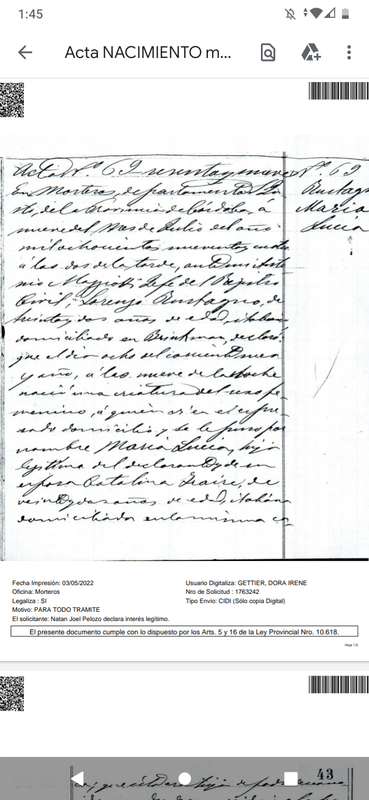 1:45
Acta NACIMIENTO m...
Acta Nº. 69 sesentaynueve
Nº. 69
En Morteros, departamento San
Rustagn
to, de la Provincia de Córdoba, á
Maria
nueve del Mes de Julio del año
Lucia
mil ochocientos noventa
á las dos de la tarde, ante mi
Jefe del Registro
Civil; Lorenzo Rustagno, de
treinta y dos años de edad, italiano
domiciliado en Brinkman, declaró:
que el dia ocho del corriente mes
y año, á las nueve de la noche
nació una criatura del sexo fe-
menino, á quien en el espre-
sado domicilio y se le puso por
nombre Maria Lucia, hija
legítima del declarante y de su
esposa Catalina, de
veintydos años de edad, italiana
domiciliada en la misma
Fecha Impresión: 03/05/2022
Oficina: Morteros
Legaliza : SI
Motivo: PARA TODO TRAMITE
El solicitante: Natan Joel Pelozo declara interés legítimo.
Usuario Digitaliza: GETTIER, DORA IRENE
Nro de Solicitud : 1763242
Tipo Envio: CIDI (Sólo copia Digital)
El presente documento cumple con lo dispuesto por los Arts. 5 y 16 de la Ley Provincial Nro. 10.618.
43